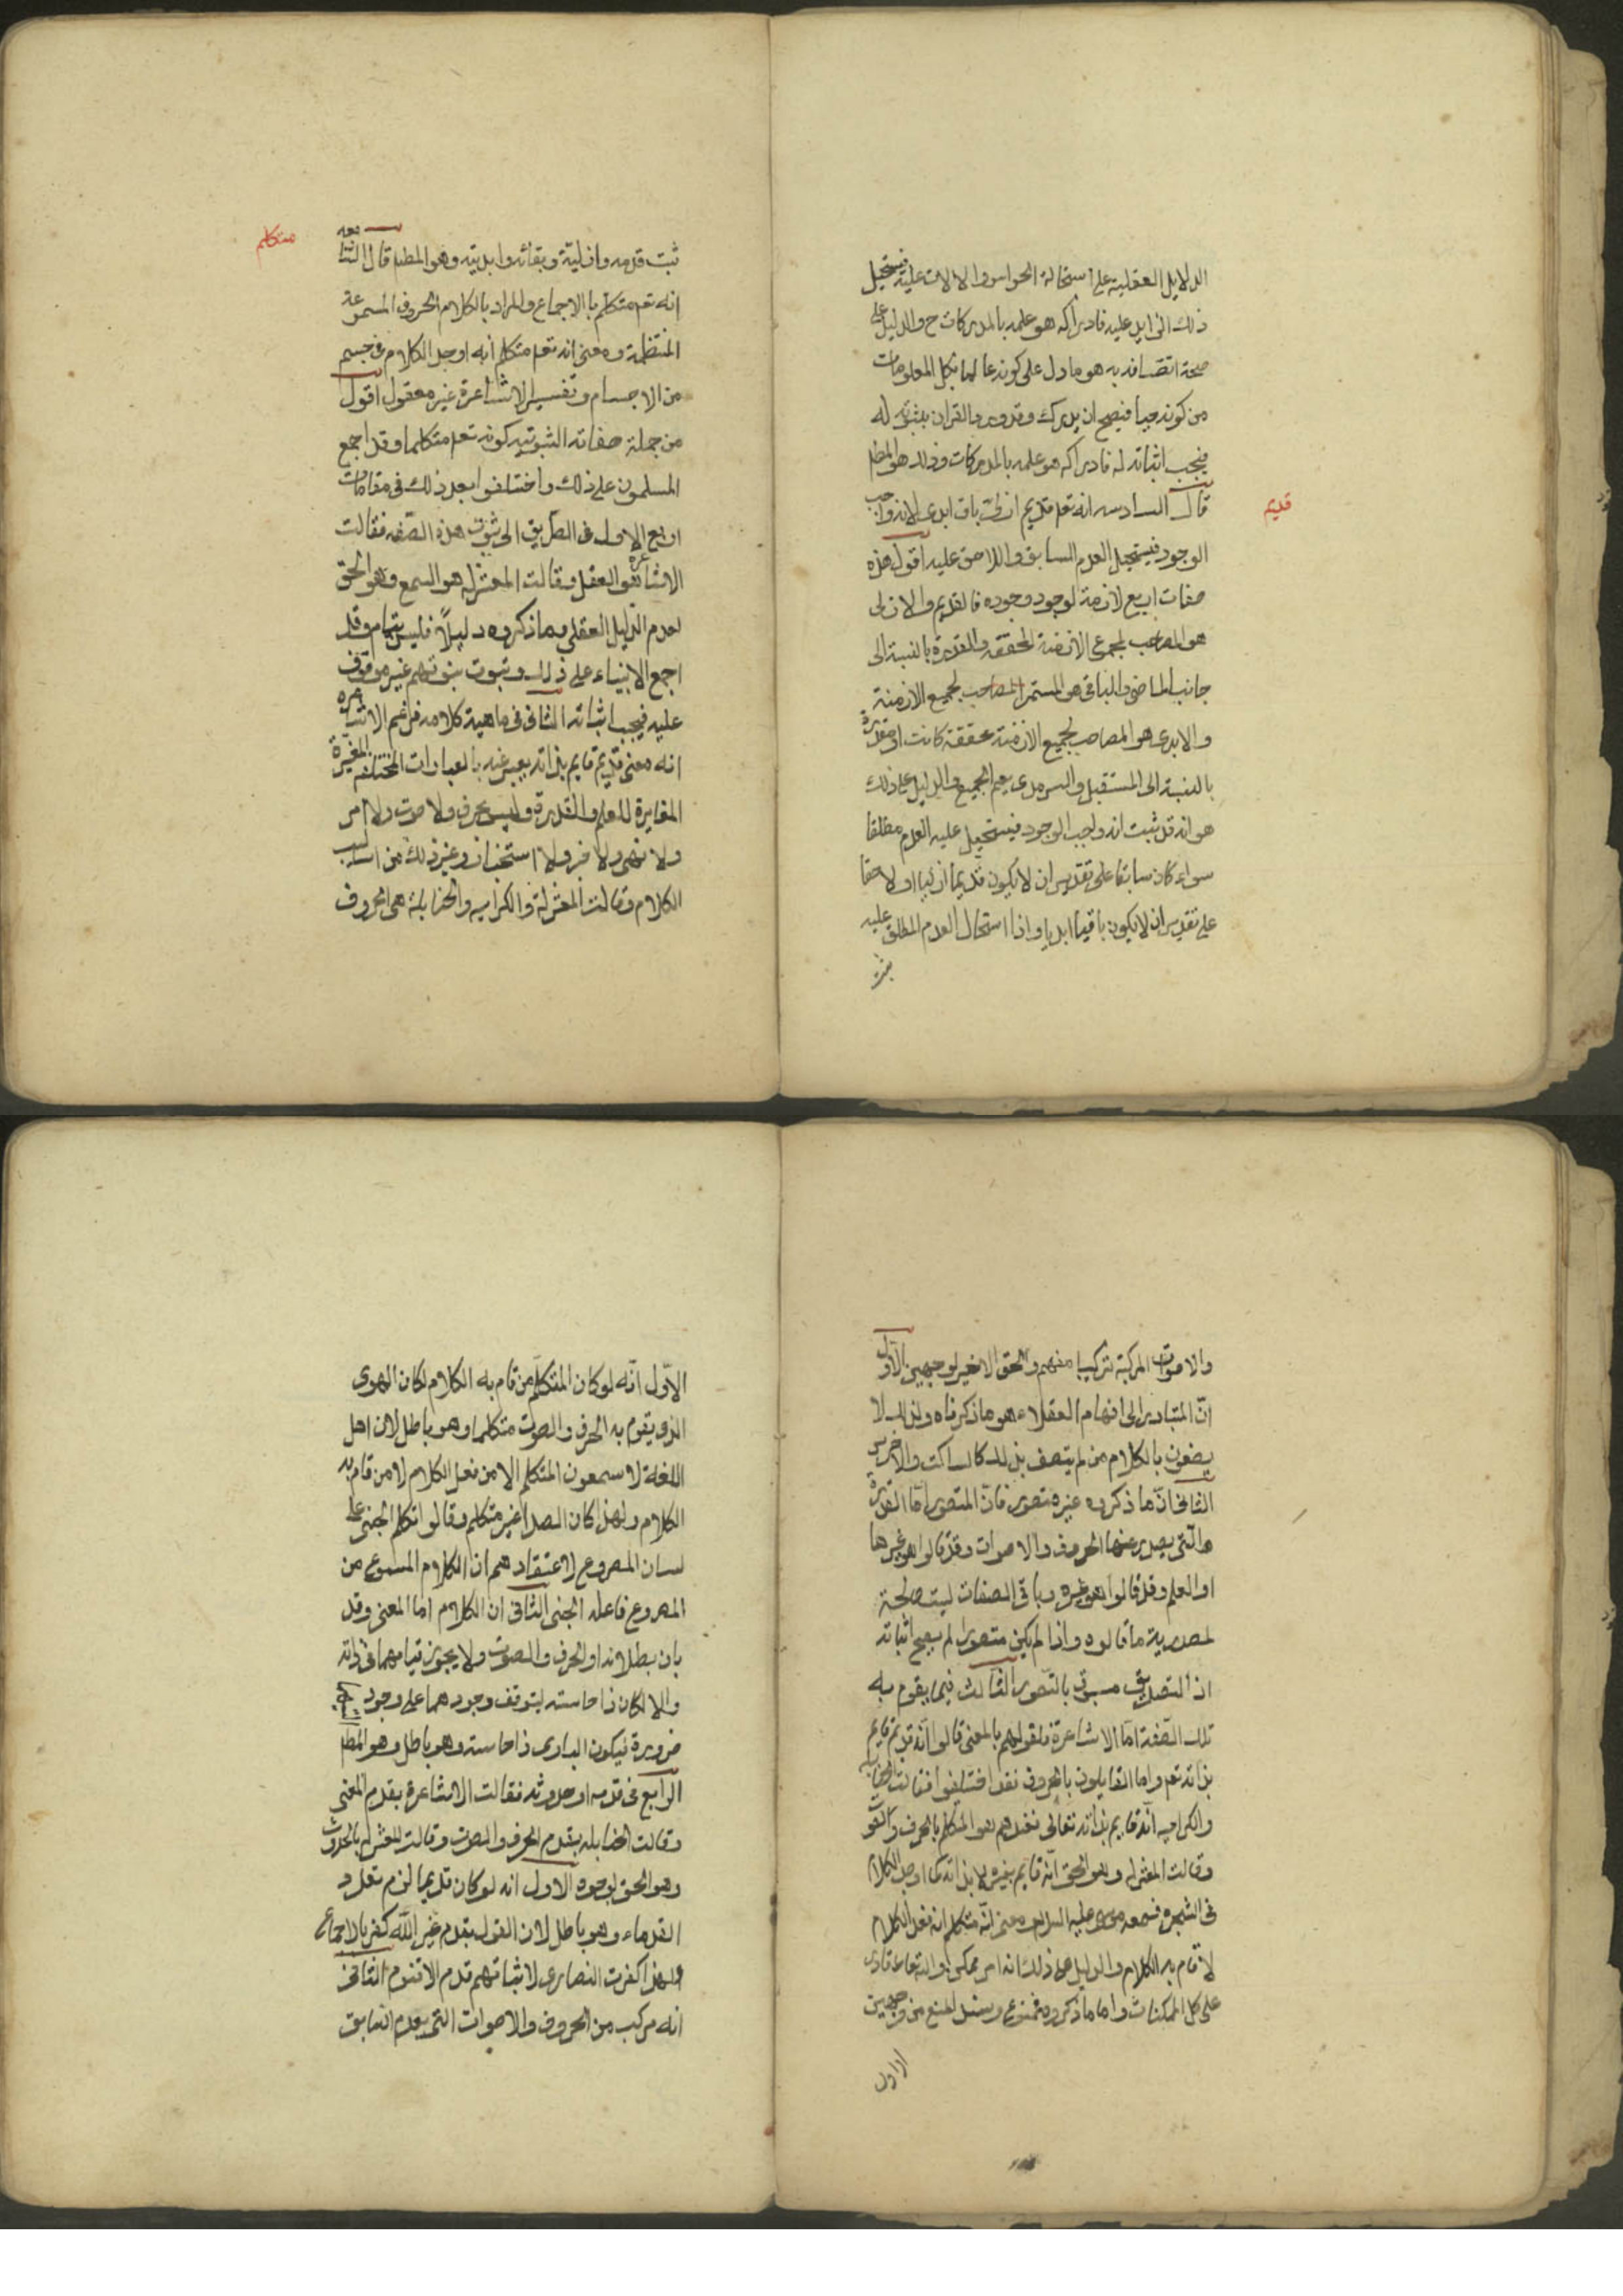 الدلايل العقلية على استحالة الحواس والالات عليه فيستحيل
ذلك الزايل عليه فادراكه هو علمه بالمدركات ح والدليل على
صحة اتصافه به هو ما دل على كونه عالما بكل المعلومات
من كونه حيا فيصح ان يدرك وقد ورد القران بثبوته له
فيجب اثباته له فادراكه هو علمه بالمدركات وذلك هو المط
قديم
قال السادسه انه تعم قديم ازلى باق ابدى لانه واجب
الوجود فيستحيل العدم السابق واللاحق عليه اقول هذه
صفات اربع لازمة لوجوب وجوده فالقديم والازلى
هو المصاحب لمجموع الازمنة المحققه والمقدرة بالنسبة الى
جانب الماضى والباقى هو المستمر المصاحب لجميع الازمنة
والابدى هو المصاحب لجميع الازمنة محققة كانت او مقدرة
بالنسبة الى المستقبل والسرمدى يعم الجميع والدليل على ذلك
هو انه قد ثبت انه واجب الوجود فيستحيل عليه العدم مطلقا
سواء كان سابقا على تقدير ان لا يكون قديما ازليا او لاحقا
على تقدير ان لا يكون باقيا ابديا واذا استحال العدم المطلق عليه
ثبت
متكلم
ثبت قدمه وازليته وبقائه وابديته وهو المطلـ قال السابعه
انه تعم متكلم بالاجماع والمراد بالكلام الحروف المسموعة
المنتظمة ومعنى انه تعم متكلم انه اوجد الكلام فى جسم
من الاجسام وتفسير الاشاعرة غير معقول اقول
من جملة صفاته الثبوتيه كونه تعم متكلما وقد اجمع
المسلمون على ذلك واختلفوا بعد ذلك فى مقامات
اربع الاول فى الطريق الى ثبوت هذه الصفه فقالت
الاشاعره هو العقل وقالت المعتزله هو السمع وهو الحق
لعدم الدليل العقلى وما ذكروه دليلاً فليس بتام وقد
اجمع الانبياء على ذلك وثبوت نبوتهم غير موقوف
عليه فيجب اثباته الثانى فى ماهية كلامه فزعم الاشاعره
انه معنى قديم قايم بذاته يعبر عنه بالعبارات المختلفه المتغيرة
المغايرة للعلم والقدرة وليس بحرف ولا صوت ولا امر
ولا نهى ولا خبر ولا استخبار وغير ذلك من اساليب
الكلام وقالت المعتزلة والكراميه والحنابلة هى الحروف
والاصوات المركبة تركيبا مفهم والحق الاخير لوجهين الاول
انّ المتبادر الى افهام العقلاء هو ما ذكرناه ولذلك لا
يصفون بالكلام من لم يتصف بذلك كالساكت والاخرس
الثانى انّ ما ذكروه غير متصور فانّ المتصور امّا القدرة
والتى يصدر عنها الحروف والاصوات وقد قالوا هو غيرها
او العلم وقد قالوا هو غيره وباقى الصفات ليست صالحة
لمصدرية ما قالوه واذا لم يكن متصورا لم يصح اثباته
اذ التصديق مسبوق بالتصور الثالث فيما يقوم به
تلك الصّفة امّا الاشاعرة فلقولهم بالمعنى قالوا انه قديم قايم
بذاته تعم واما القايلون بالحروف فقد اختلفوا فقالت الحنابله
والكراميه انّه قايم بذاته تعالى فعندهم هو المتكلم بالحروف والصوت
وقالت المعتزله وهو الحق انّه قايم بغيره لا بذاته كما اوجد الكلام
فى الشجرة فسمعه موسى عليه السلام ومعنى انّه متكلم انه فعل الكلام
لا قام به الكلام والدليل على ذلك انه امر ممكن والله تعالى قادر
على كل الممكنات واما ما ذكروه فممنوع وسند المنع من وجهين
الاول
الاوّل انّه لو كان المتكلّم من قام به الكلام لكان الهوى
الذى يقوم به الحرف والصوت متكلما وهو باطل لان اهل
اللغة لا يسمعون المتكلم الا من فعل الكلام لا من قام به
الكلام ولهذا كان الصدا غير متكلم وقالوا تكلم الجنى على
لسان المصروع لاعتقادهم ان الكلام المسموع من
المصروع فاعله الجنى الثانى ان الكلام اما المعنى وقد
بان بطلانه او الحرف والصوت ولا يجوز قيامهما فى ذاته
والا لكان ذا حاسته ليتوقف وجودهما على وجود
ضرورة فيكون البارى ذا حاسته وهو باطل وهو المط
الرابع فى قدمه او حدوثه فقالت الاشاعرة بقدم المعنى
وقالت الحنابله بقدم الحرف والصوت وقالت المعتزله بالحدوث
وهو الحق لوجوه الاول انه لو كان قديما لزم تعدد
القدماء وهو باطل لان القول بقدم غير الله كفر بالاجماع
ولهذا كفرت النصارى لاثباتهم قدم الاقنوم الثانى
انه مركب من الحروف والاصوات التى يعدم السابق